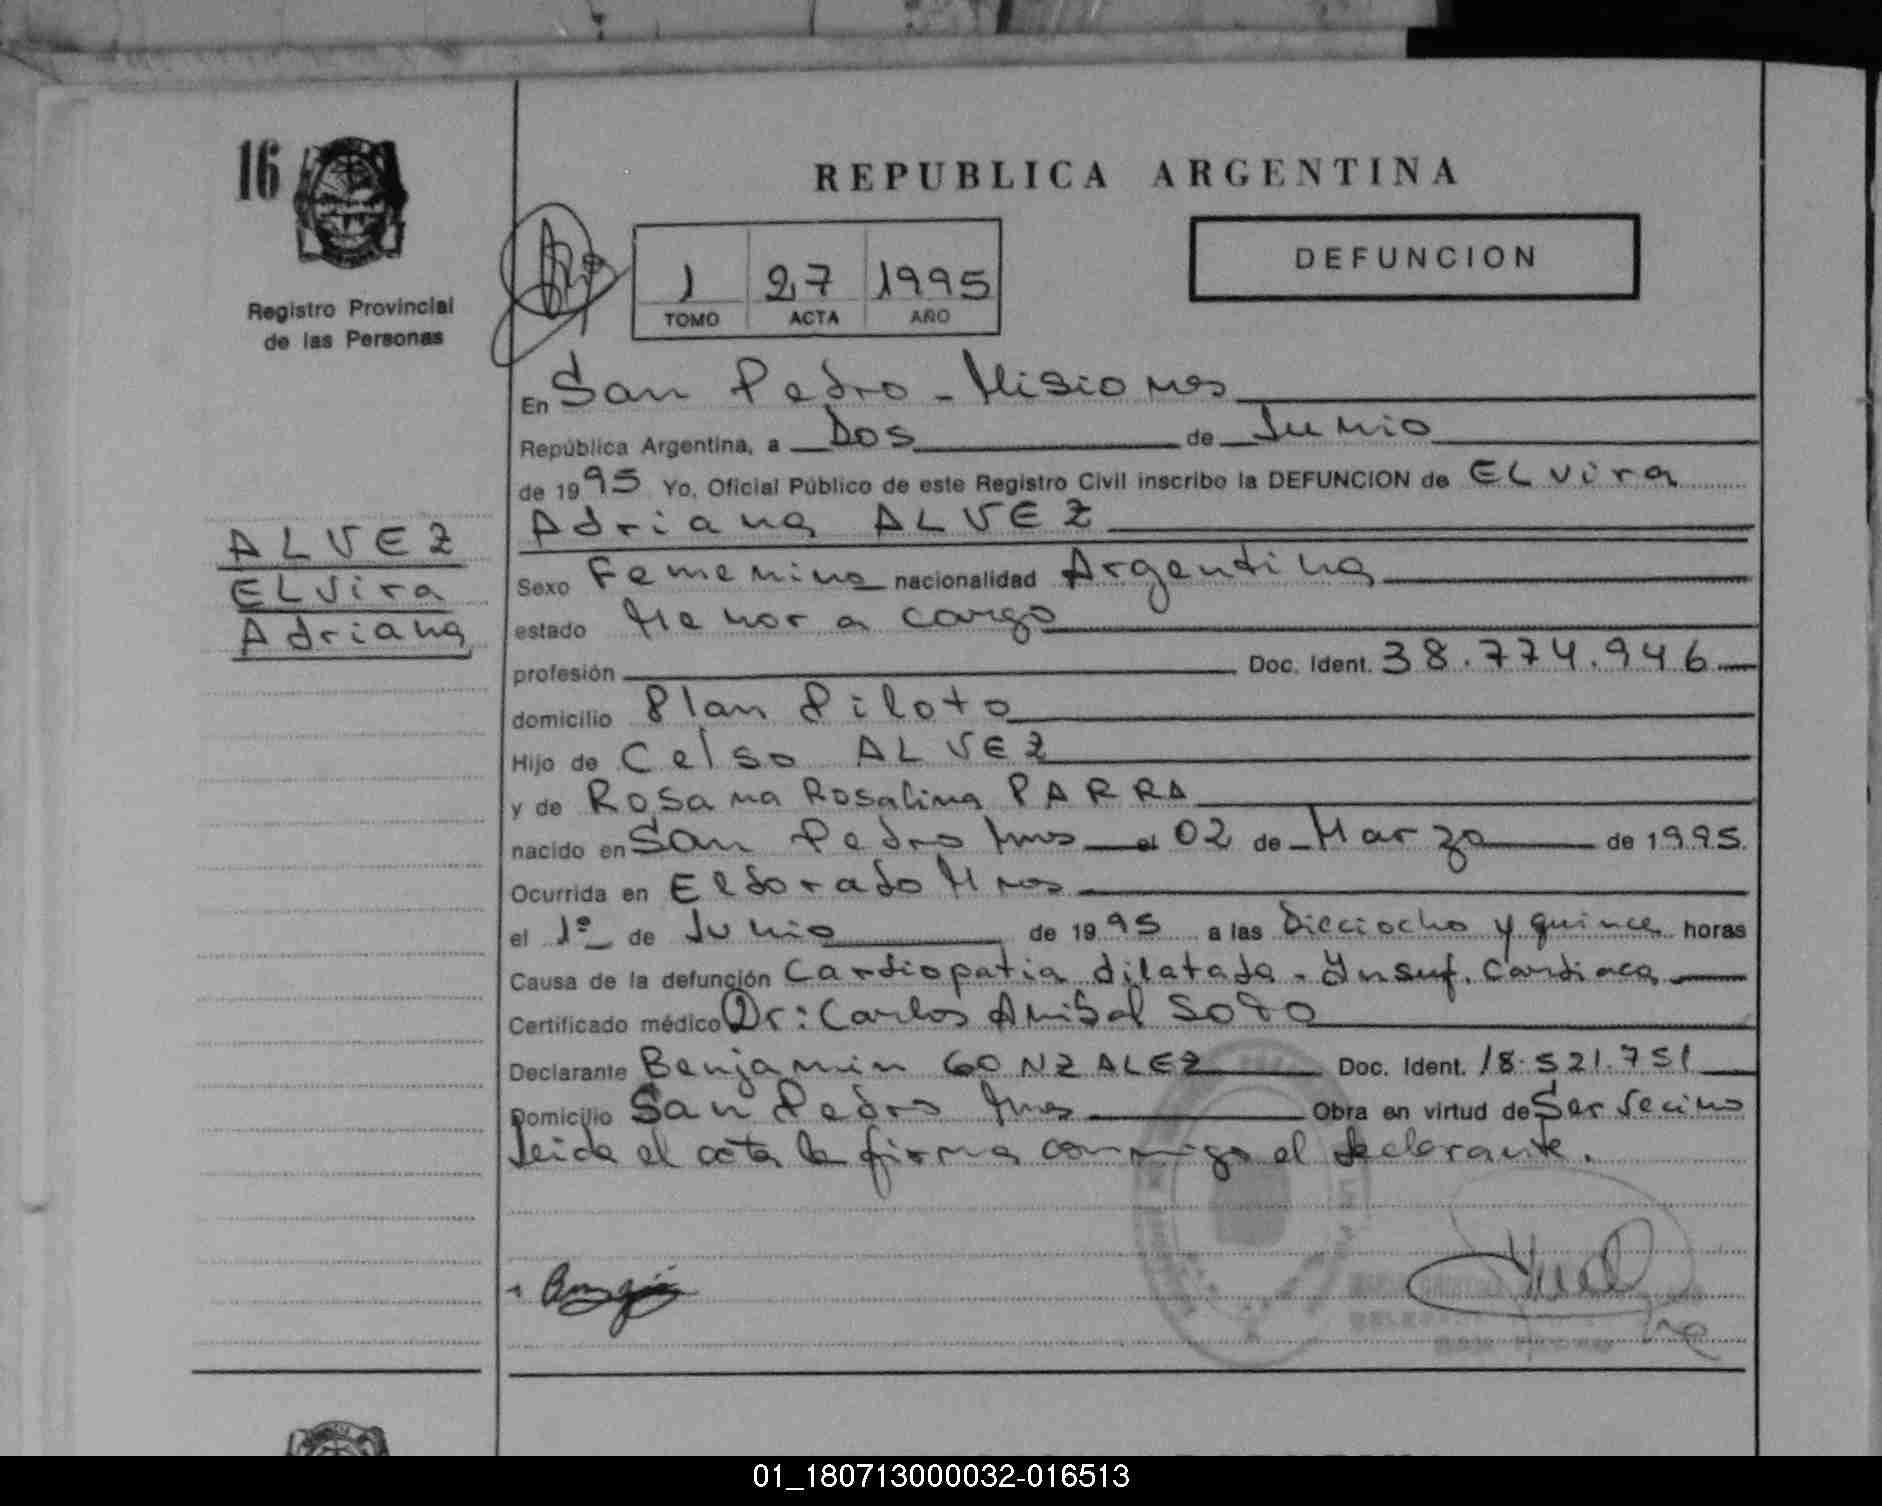 16
REPUBLICA ARGENTINA
DEFUNCION
1 27 1995
TOMO ACTA AÑO
Registro Provincial
de las Personas
En San Pedro - Misiones
República Argentina, a Dos de Junio
de 1995 Yo, Oficial Público de este Registro Civil inscribo la DEFUNCION de ELvira
Adriana ALVEZ
ALVEZ
ELvira
Adriana
Sexo Femenino nacionalidad Argentina
estado Menor a cargo
profesión Doc. Ident. 38.774.946
domicilio Plan Piloto
Hijo de Celso ALVEZ
y de Rosana Rosalina PARRA
nacido en San Pedro Mnes el 02 de Marzo de 1995.
Ocurrida en Eldorado Mnes
el 1º de Junio de 1995 a las Dieciocho y quince horas
Causa de la defunción Cardiopatia dilatada - Insuf. Cardiaca
Certificado médico Dr: Carlos Anibal SOTO
Declarante Benjamin GONZALEZ Doc. Ident. 18.521.751
Domicilio San Pedro Mnes Obra en virtud de Ser Vecino
Leida el acta la firma conmigo el declarante.
01_180713000032-016513